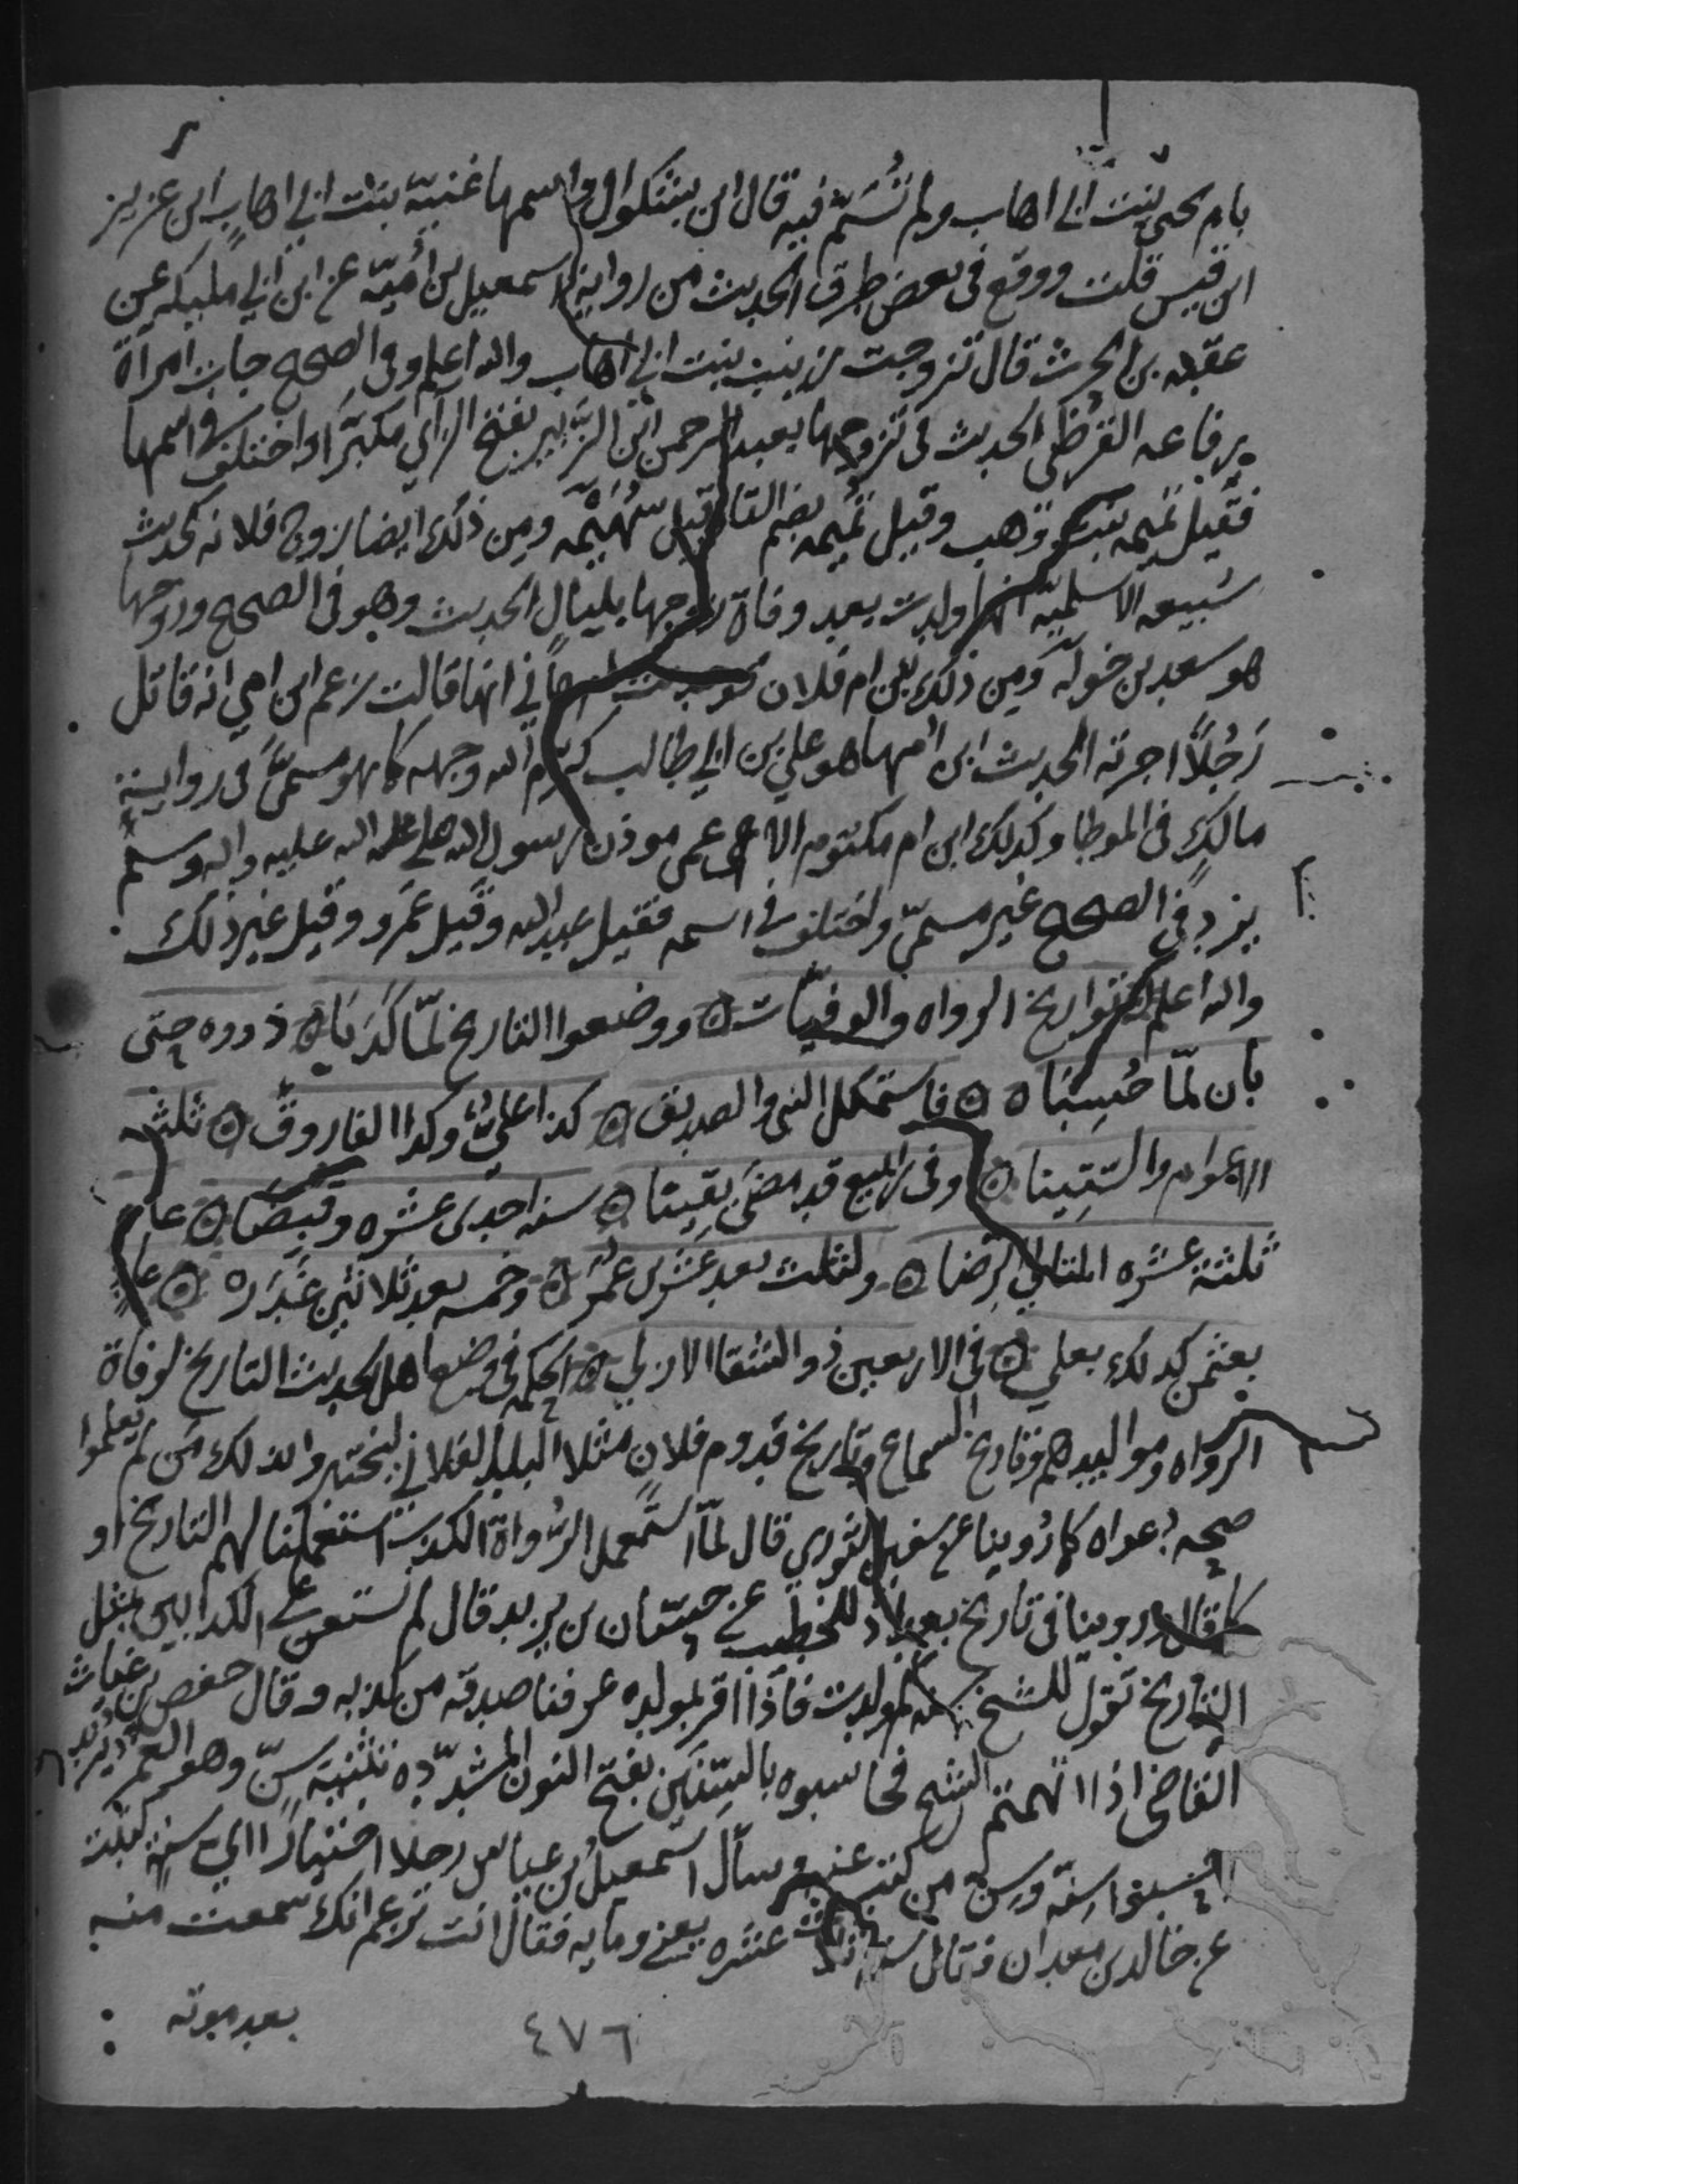 بام يحيى بنت ابي اهاب ولم تُسَمّ فيه قال ابن بشكوال واسمها غنيّة بنت ابي اهاب ابن عزيز
ابن قيس قلت ووقع في بعض طرق الحديث من رواية اسمعيل بن أميّة عن ابن ابي مليكه عن
عقبه بن الحرث قال تزوجت زينب بنت ابي اهاب والله اعلم وفي الصحيح جات امرأة
رفاعه القرظي الحديث في تزوجها بعبد الرحمن ابن الزَّبير بفتح الزاي مكبّرا واختلف في اسمها
فقيل تميمه بنت وهب وقيل تُميمه بضم التا وقيل سُهَيْمه ومن ذلك ايضا زوج فلانه كحديث
سُبيعه الاسلميّة انها ولدت بعد وفاة زوجها بليال الحديث وهو في الصحيح وزوجها
هو سعد بن خولة ومن ذلك ابن ام فلان كحديث ام هاني انها قالت زعم ابن امي انه قاتل
رَجُلاً اجرته الحديث ابن امها هو علي بن ابي طالب كرّم الله وجهه كما هو مسمىً في رواية
مالك في الموطا وكذلك ابن ام مكتوم الاعمى موذن رسول الله صلى الله عليه واله وسلم
يرد في الصحيح غير مسمّى واختلف في اسمه فقيل عبد الله وقيل عَمرو وقيل غير ذلك
والله اعلم تواريخ الرواه والوفيّات ووضعوا التاريخ لمّا كَذَبَا ذووه حتى
بان لمّا حُسِبَا فاستكمل النبي والصديق كذا عليٌّ وكذا الفاروق ثلثه
الاعوام والستينا وفي ربيع قد مضى يقينا سنه احدى عشره وقبضا عام
ثلثة عشره التالي الرضا ولثلث بعد عشرين عمر وخمسه بعد ثلاثين غَدَره عاد
بعثمن كذلك بعلي في الاربعين ذو الشقا الازلي الحكمه في وضع اهل الحديث التاريخ لوفاة
الرواه ومواليدهم وتاريخ السماع وتاريخ قدوم فلان مثلا البلد الفلاني ليختبروا بذلك مَن لم يعلموا
صحه دعواه كما رُوينا عن سفين الثوري قال لمّا استعمل الرُواة الكذب استعملنا لهم التاريخ او
كما قال وروينا في تاريخ بغداد للخطيب عن حسّان بن يزيد قال لم نستعن على الكذابين بمثل
التاريخ نقول للشيخ سنه كم ولدت فاذا اقر بمولده عرفنا صدقه من كذبه وقال حفص بن غياث
القاضي اذا اتهمتم الشيخ فحاسبوه بالسِنَّين بفتح النون المشدّده تثنية سِنّ وهو العمر يريد
احسبوا سنّه وسن من كتب عنه وسأل اسمعيل بن عياش رجلا اختبارا اي سنة كتبت
عن خالد بن معدان فقال سنه ثلاث عشره يعني ومايه فقال انت تزعم انك سمعت منه
بعد موته
٤٧٦